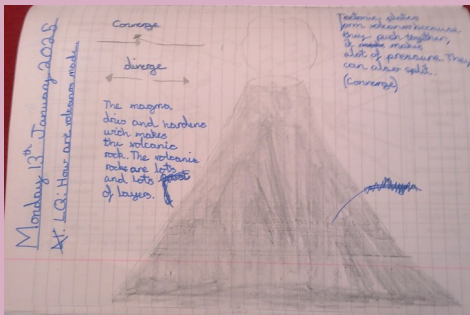 Monday 13th January 2025
LQ: How are volcanos made
Converge
diverge
The magma
dries and hardens
wich makes
the volcanic
rock. The volcanic
rocks are lots
and lots
of layers.
Tectonic plates
form volcanos because
they push together,
it makes
alot of pressure. They
can also split.
(Converge)